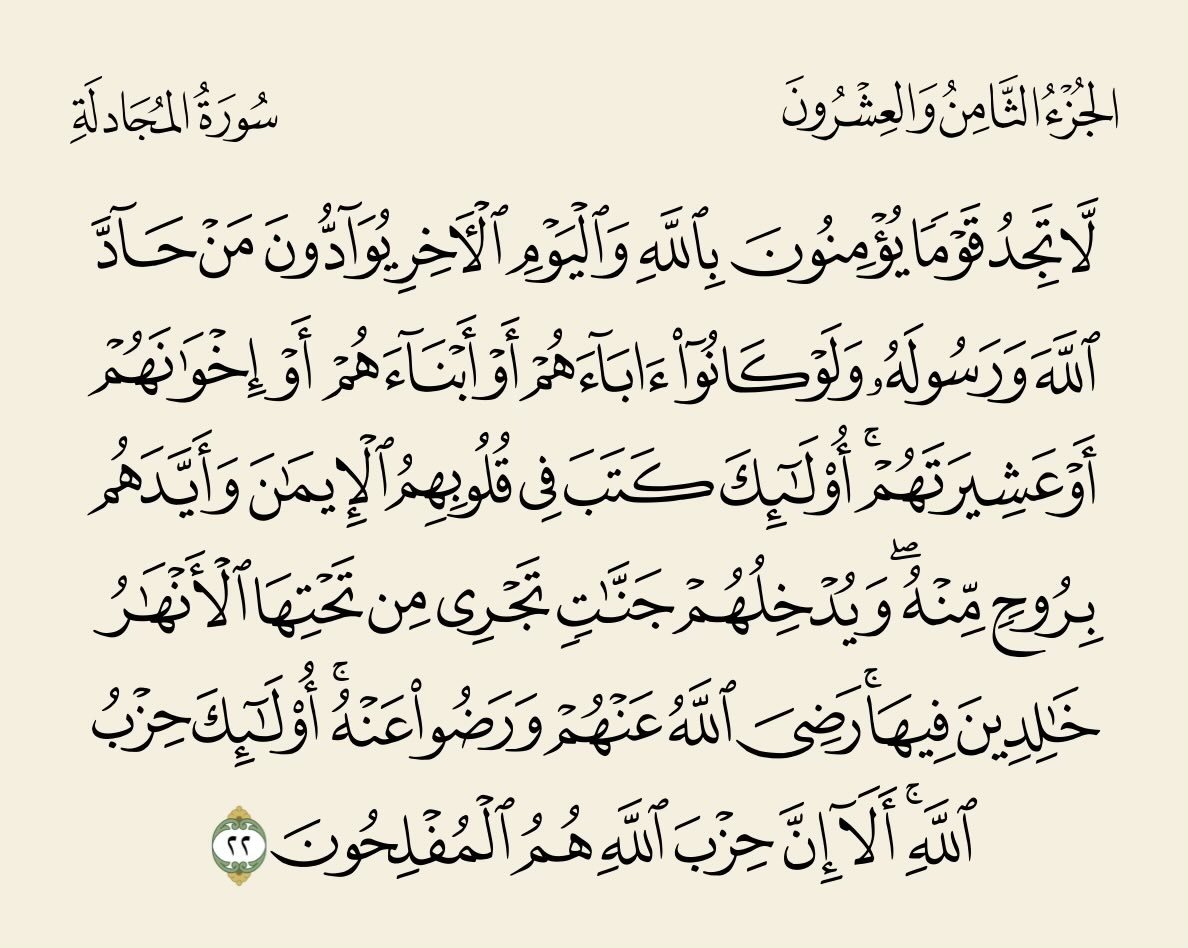 الجُزْءُ الثَّامِنُ وَالعِشْرُونَ
سُورَةُ المُجَادلَةِ
لَّا تَجِدُ قَوْمًا يُؤْمِنُونَ بِٱللَّهِ وَٱلْيَوْمِ ٱلْأَخِرِ يُوَآدُّونَ مَنْ حَآدَّ
ٱللَّهَ وَرَسُولَهُۥ وَلَوْ كَانُوٓا۟ ءَابَآءَهُمْ أَوْ أَبْنَآءَهُمْ أَوْ إِخْوَٰنَهُمْ
أَوْ عَشِيرَتَهُمْ ۚ أُو۟لَـٰٓئِكَ كَتَبَ فِى قُلُوبِهِمُ ٱلْإِيمَـٰنَ وَأَيَّدَهُم
بِرُوحٍ مِّنْهُ ۖ وَيُدْخِلُهُمْ جَنَّـٰتٍ تَجْرِى مِن تَحْتِهَا ٱلْأَنْهَـٰرُ
خَـٰلِدِينَ فِيهَا ۚ رَضِىَ ٱللَّهُ عَنْهُمْ وَرَضُوا۟ عَنْهُ ۚ أُو۟لَـٰٓئِكَ حِزْبُ
ٱللَّهِ ۚ أَلَآ إِنَّ حِزْبَ ٱللَّهِ هُمُ ٱلْمُفْلِحُونَ ٢٢